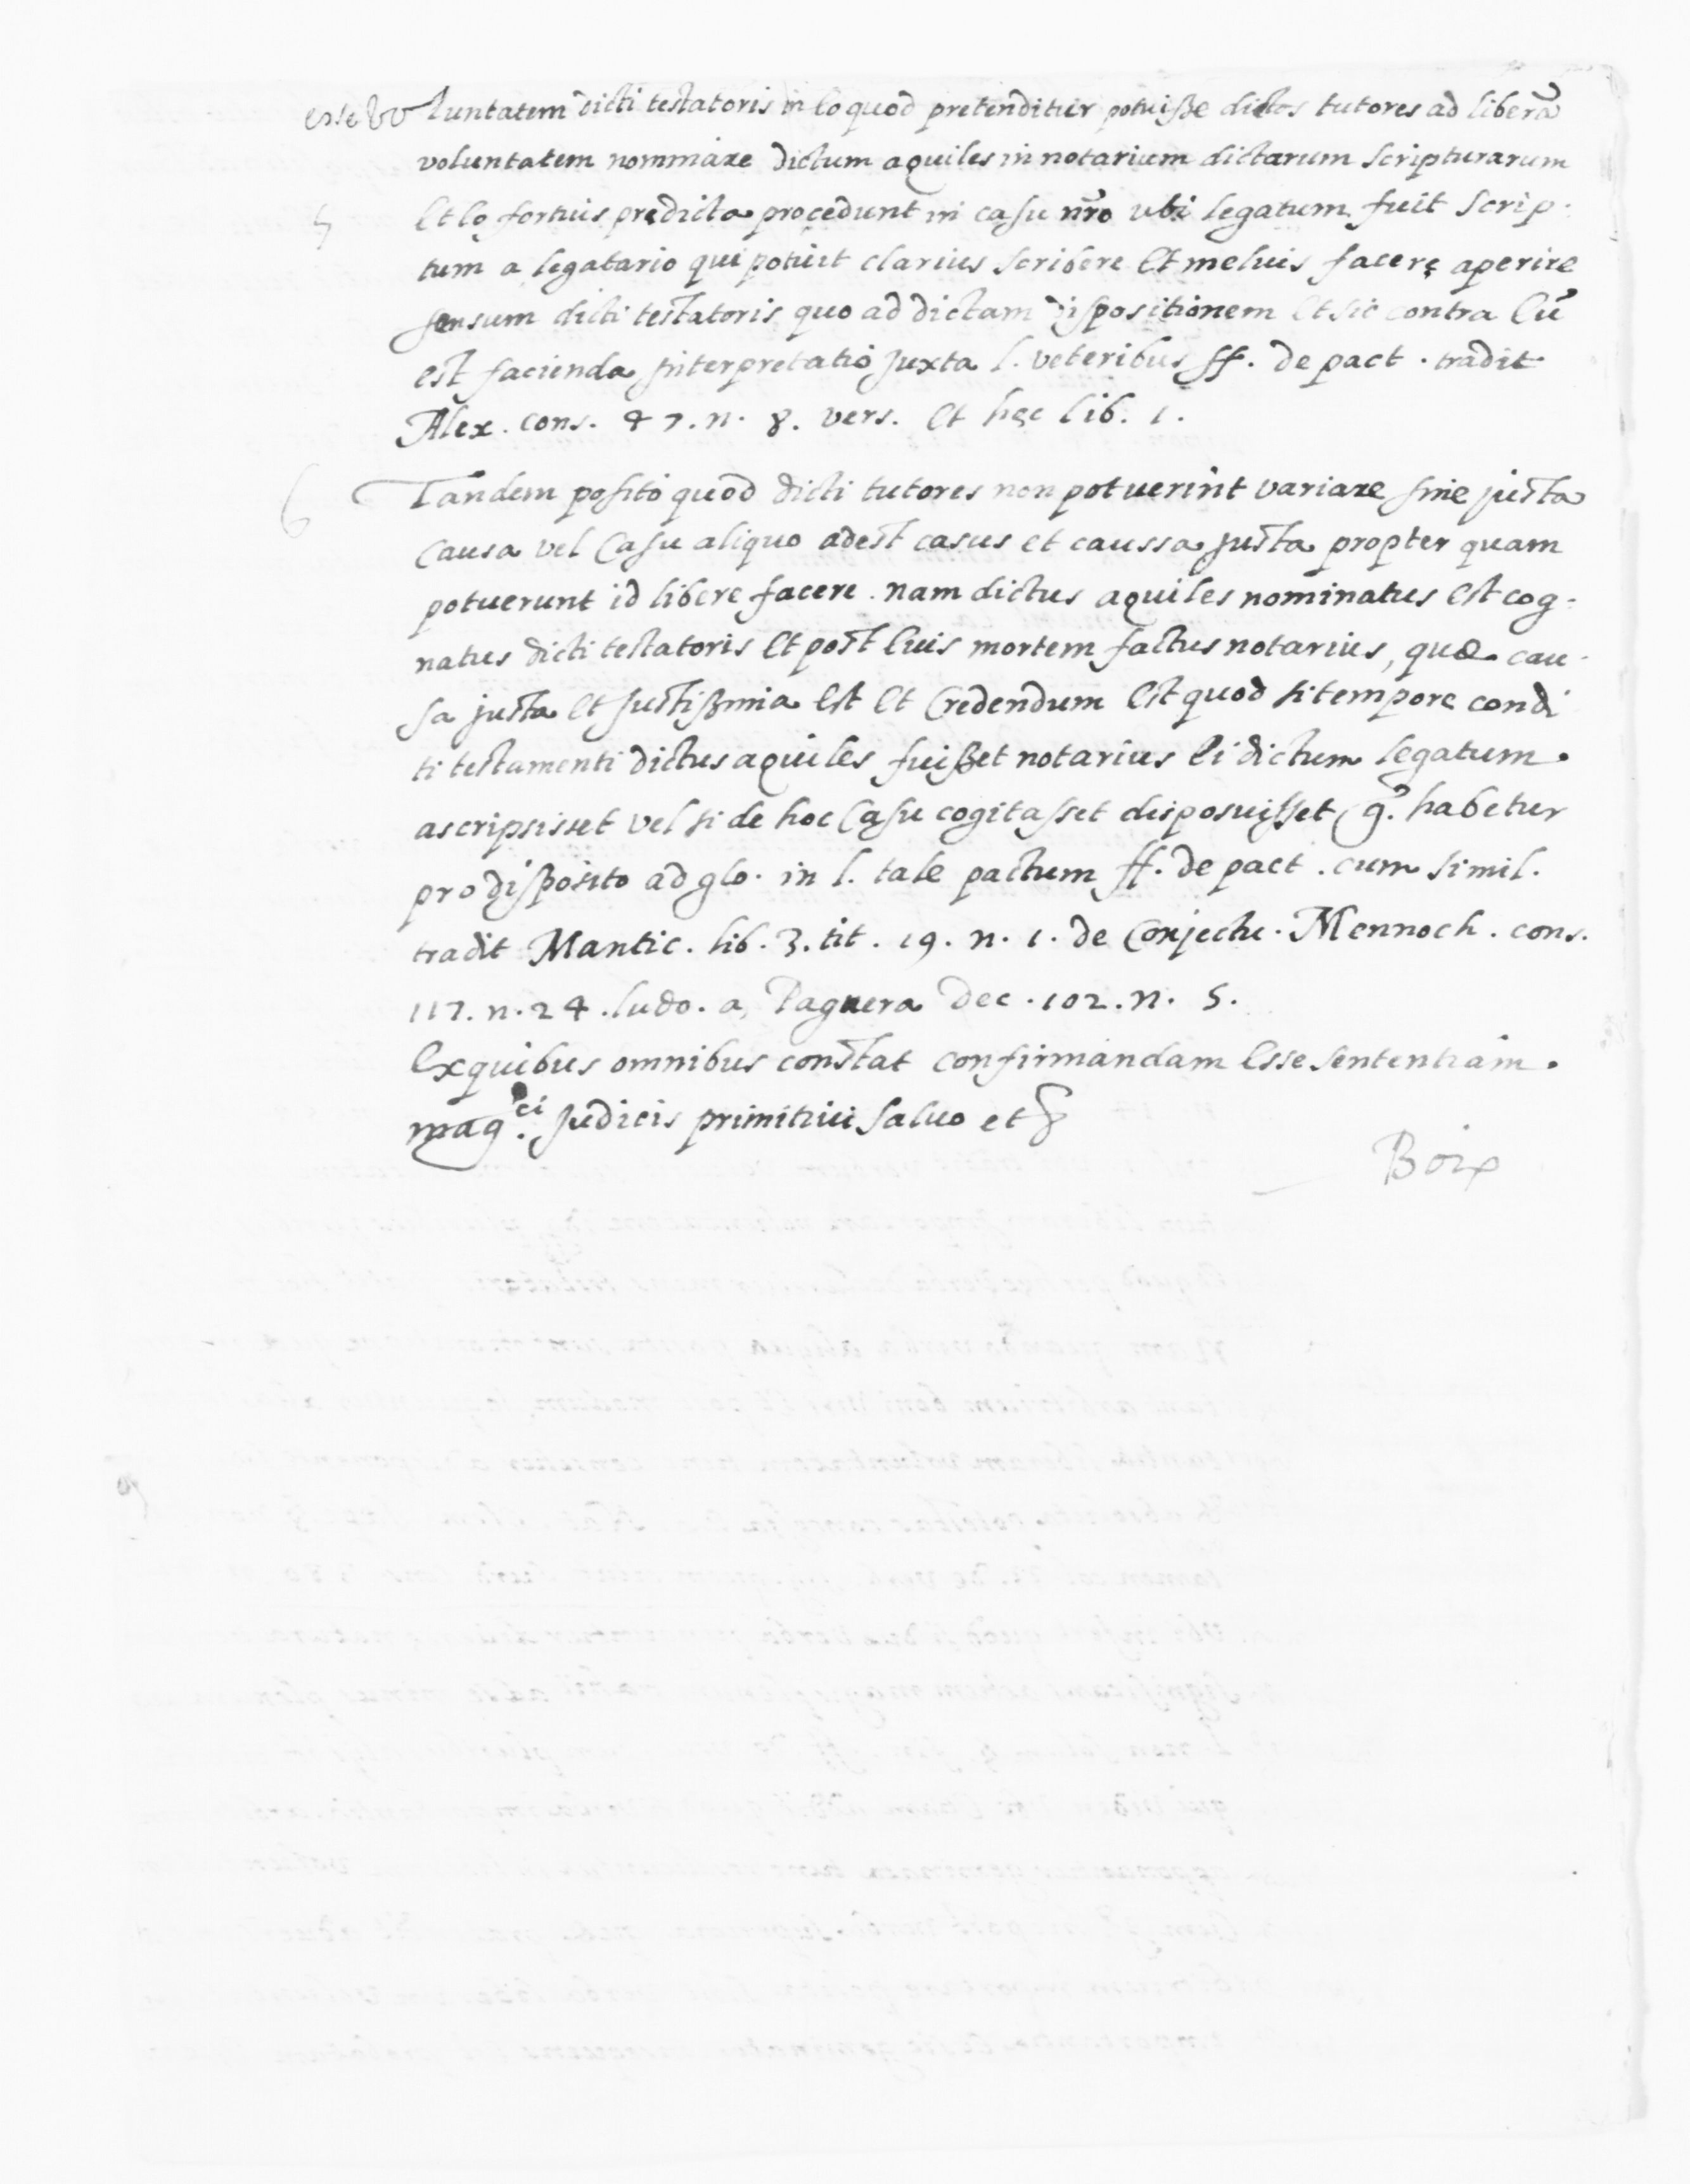 esse vo luntatem dicti testatoris in eo quod pretenditur potuisse dictos tutores ad liberā
voluntatem nominare dictum aquiles in notarium dictarum scripturarum
5 Et eo fortius predicta procedunt in casu nrō ubi legatum fuit scrip-
tum a legatario qui potuit clarius scribere Et melius facere aperire
sensum dicti testatoris quo ad dictam dispositionem Et sic contra Eū
est facienda interpretatio juxta l. veteribus ff. de pact. tradit
Alex. cons. 47. n. 8. vers. Et hęc lib. 1.
6 Tandem posito quod dicti tutores non potuerint variare sine justa
causa vel Casu aliquo adest casus et caussa justa propter quam
potuerunt id libere facere. nam dictus aquiles nominatus Est cog-
natus dicti testatoris Et post Euis mortem factus notarius, quæ cau-
sa justa Et justissima Est Et Credendum Est quod si tempore condi
ti testamenti dictus aquiles fuisset notarius Ei dictum legatum.
ascripsisset vel si de hoc Casu cogitasset disposuisset g.º habetur
pro disposito ad glo. in l. tale pactum ff. de pact. cum simil.
tradit Mantic. lib. 3. tit. 19. n. 1. de Conjectu. Mennoch. cons.
117. n. 24. ludo. a Paguera dec. 102. n. 5.
Ex quibus omnibus constat confirmandam Esse sententiam.
mag.ci judicis primitivi salvo et
Boix